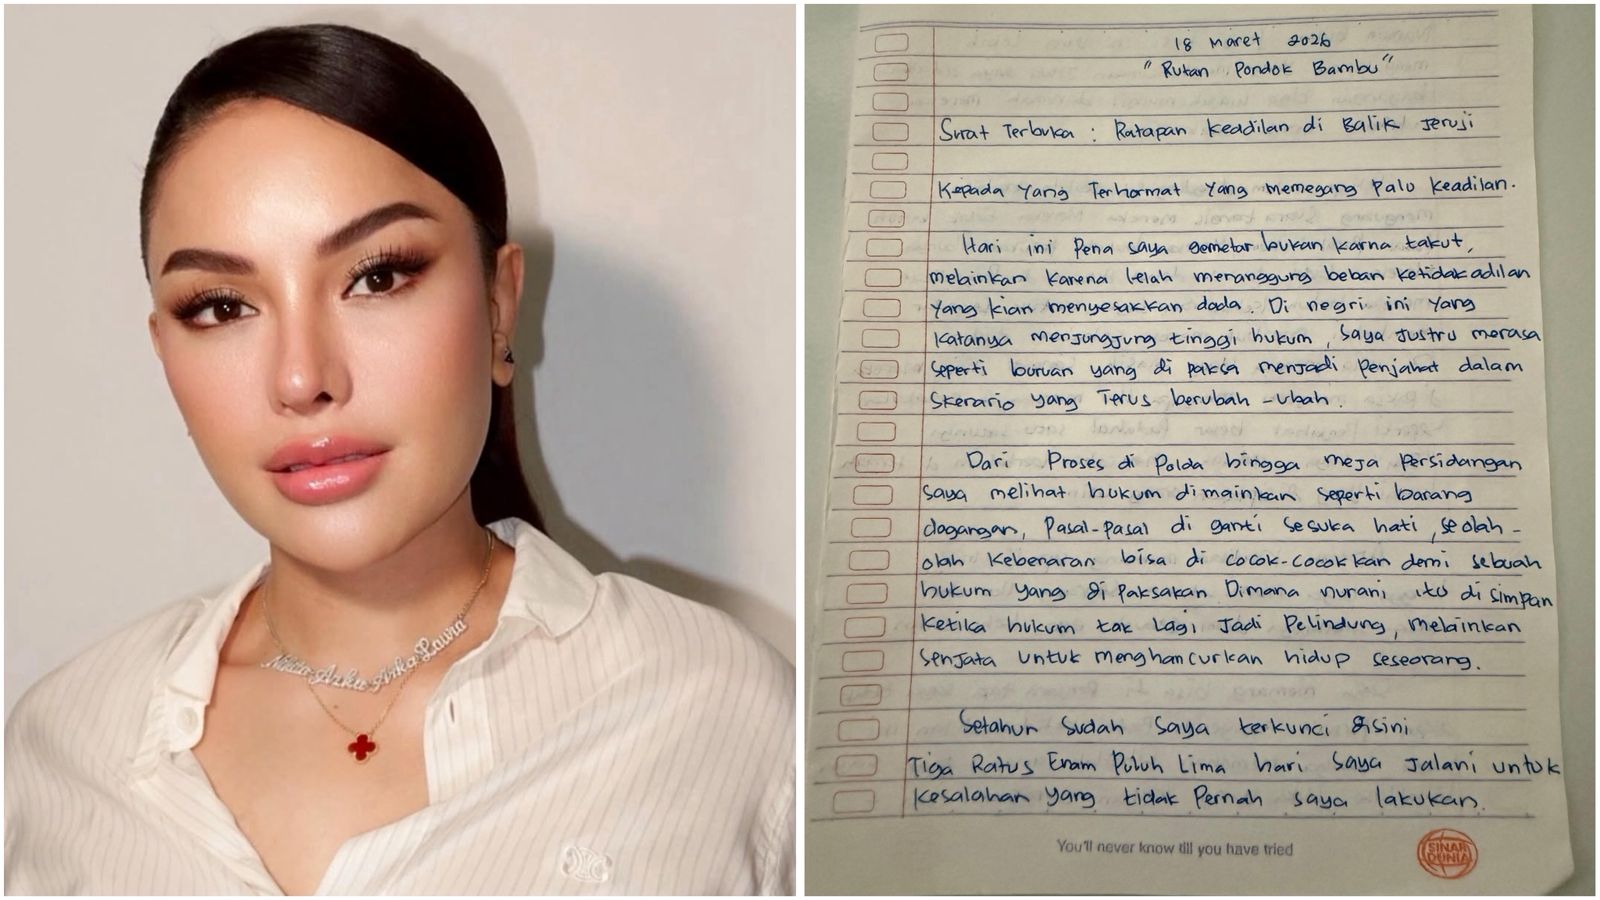 Nikita Azka Arka Laura
18 Maret 2026
"Rutan Pondok Bambu"
Surat Terbuka : Ratapan Keadilan di Balik Jeruji
Kepada Yang Terhormat Yang memegang Palu Keadilan.
Hari ini Pena saya gemetar bukan karna takut,
melainkan karena lelah menanggung beban ketidakadilan
yang kian menyesakkan dada. Di negri ini yang
katanya menjungjung tinggi hukum, saya justru merasa
seperti buruan yang di paksa menjadi penjahat dalam
Skenario yang Terus berubah-ubah.
Dari Proses di Polda hingga meja persidangan
saya melihat hukum dimainkan seperti barang
dagangan, Pasal-Pasal di ganti sesuka hati, seolah-
olah Kebenaran bisa di cocok-cocokkan demi sebuah
hukum yang di paksakan Dimana nurani itu di simpan
ketika hukum tak Lagi Jadi Pelindung, melainkan
senjata untuk menghancurkan hidup seseorang.
Setahun sudah saya terkunci disini
Tiga Ratus Enam Puluh Lima hari saya Jalani untuk
Kesalahan yang tidak Pernah saya lakukan.
You'll never know till you have tried
SINAR
DUNIA